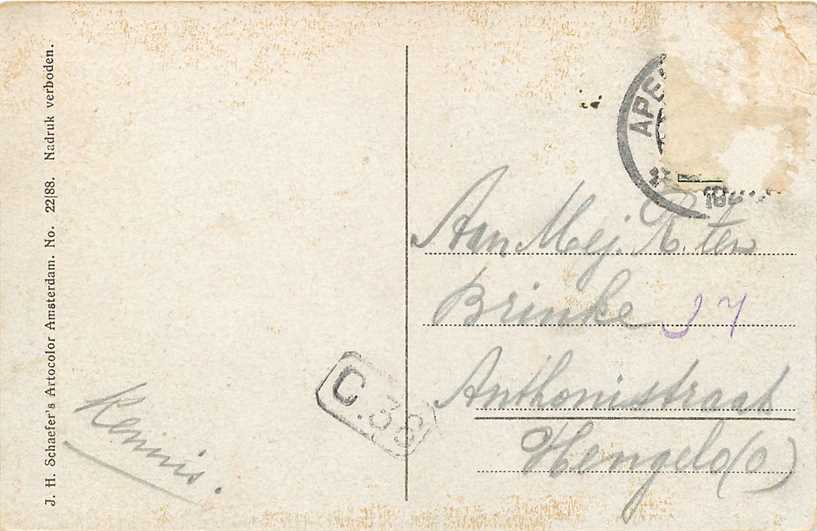 J. H. Schaefer's Artocolor Amsterdam. No. 22/88. Nadruk verboden.
Kennis.
C.36
APE
Aan Mej. R. ten
Brinke 37
Anthonistraat
Hengelo (O)